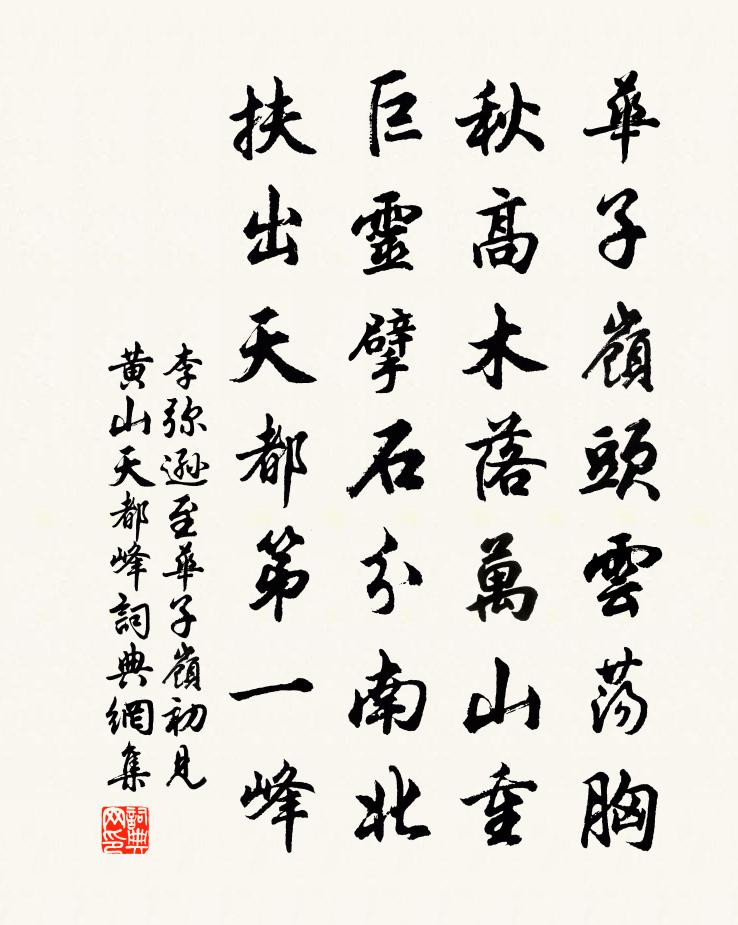 華子嶺頭雲蕩胸
秋高木落萬山重
巨靈擘石分南北
扶出天都第一峰
李弥遜至華子嶺初見
黄山天都峰詞典網集
詞典网印